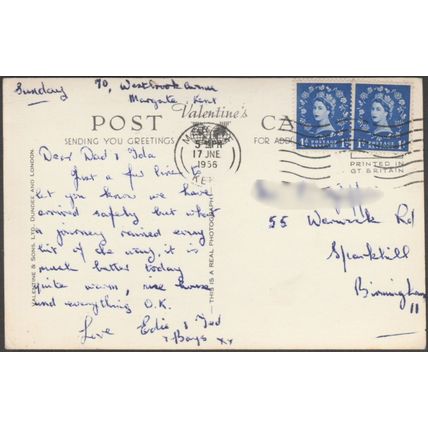 Sunday
70, Westbrook Avenue
Margate, Kent
Valentine's
POST CA
SENDING YOU GREETINGS FOR ADD
5 PM
17 JNE
1956
POSTAGE
POSTAGE
PRINTED IN
GT BRITAIN
Dear Dad & Ida
Just a few lines to
let you know we have
arrived safely but what
a journey rained every
bit of the way, it is
much better today
quite warm, nice house
and everything O.K.
Love Edie & Ted
& Boys xx
55 Warwick Rd
Sparkhill
Birmingham
11
VALENTINE & SONS, LTD., DUNDEE AND LONDON
— THIS IS A REAL PHOTOGRAPH